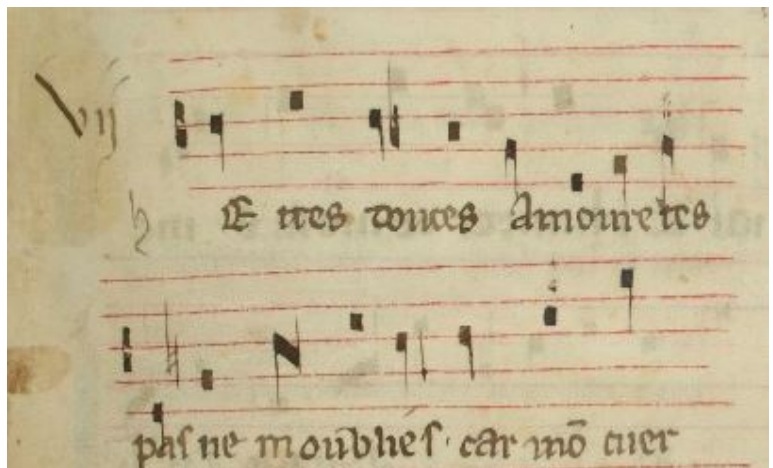 Vij
tites douces Amouretes
pas ne moūblies · car mō cuer